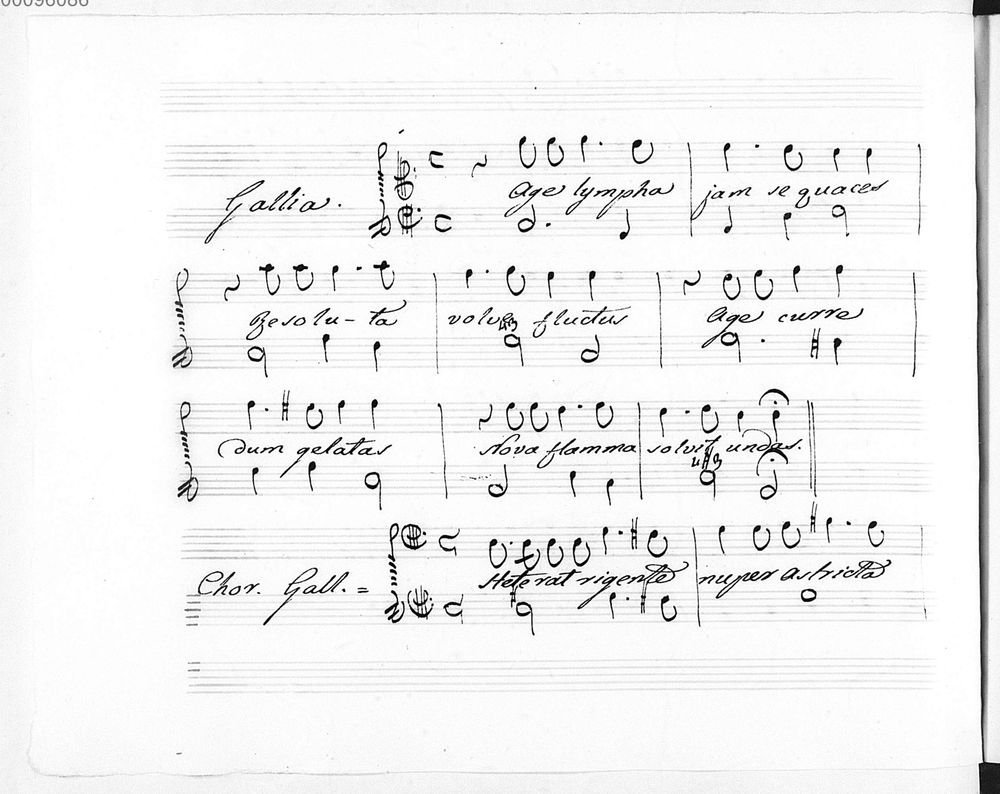 00096086
Gallia. Age lympha jam se quaces
Resolu-ta volve fluctus Age curre
dum gelatas Nova flamma solvit undas.
Chor. Gall. = Steterat rigente nuper astricta